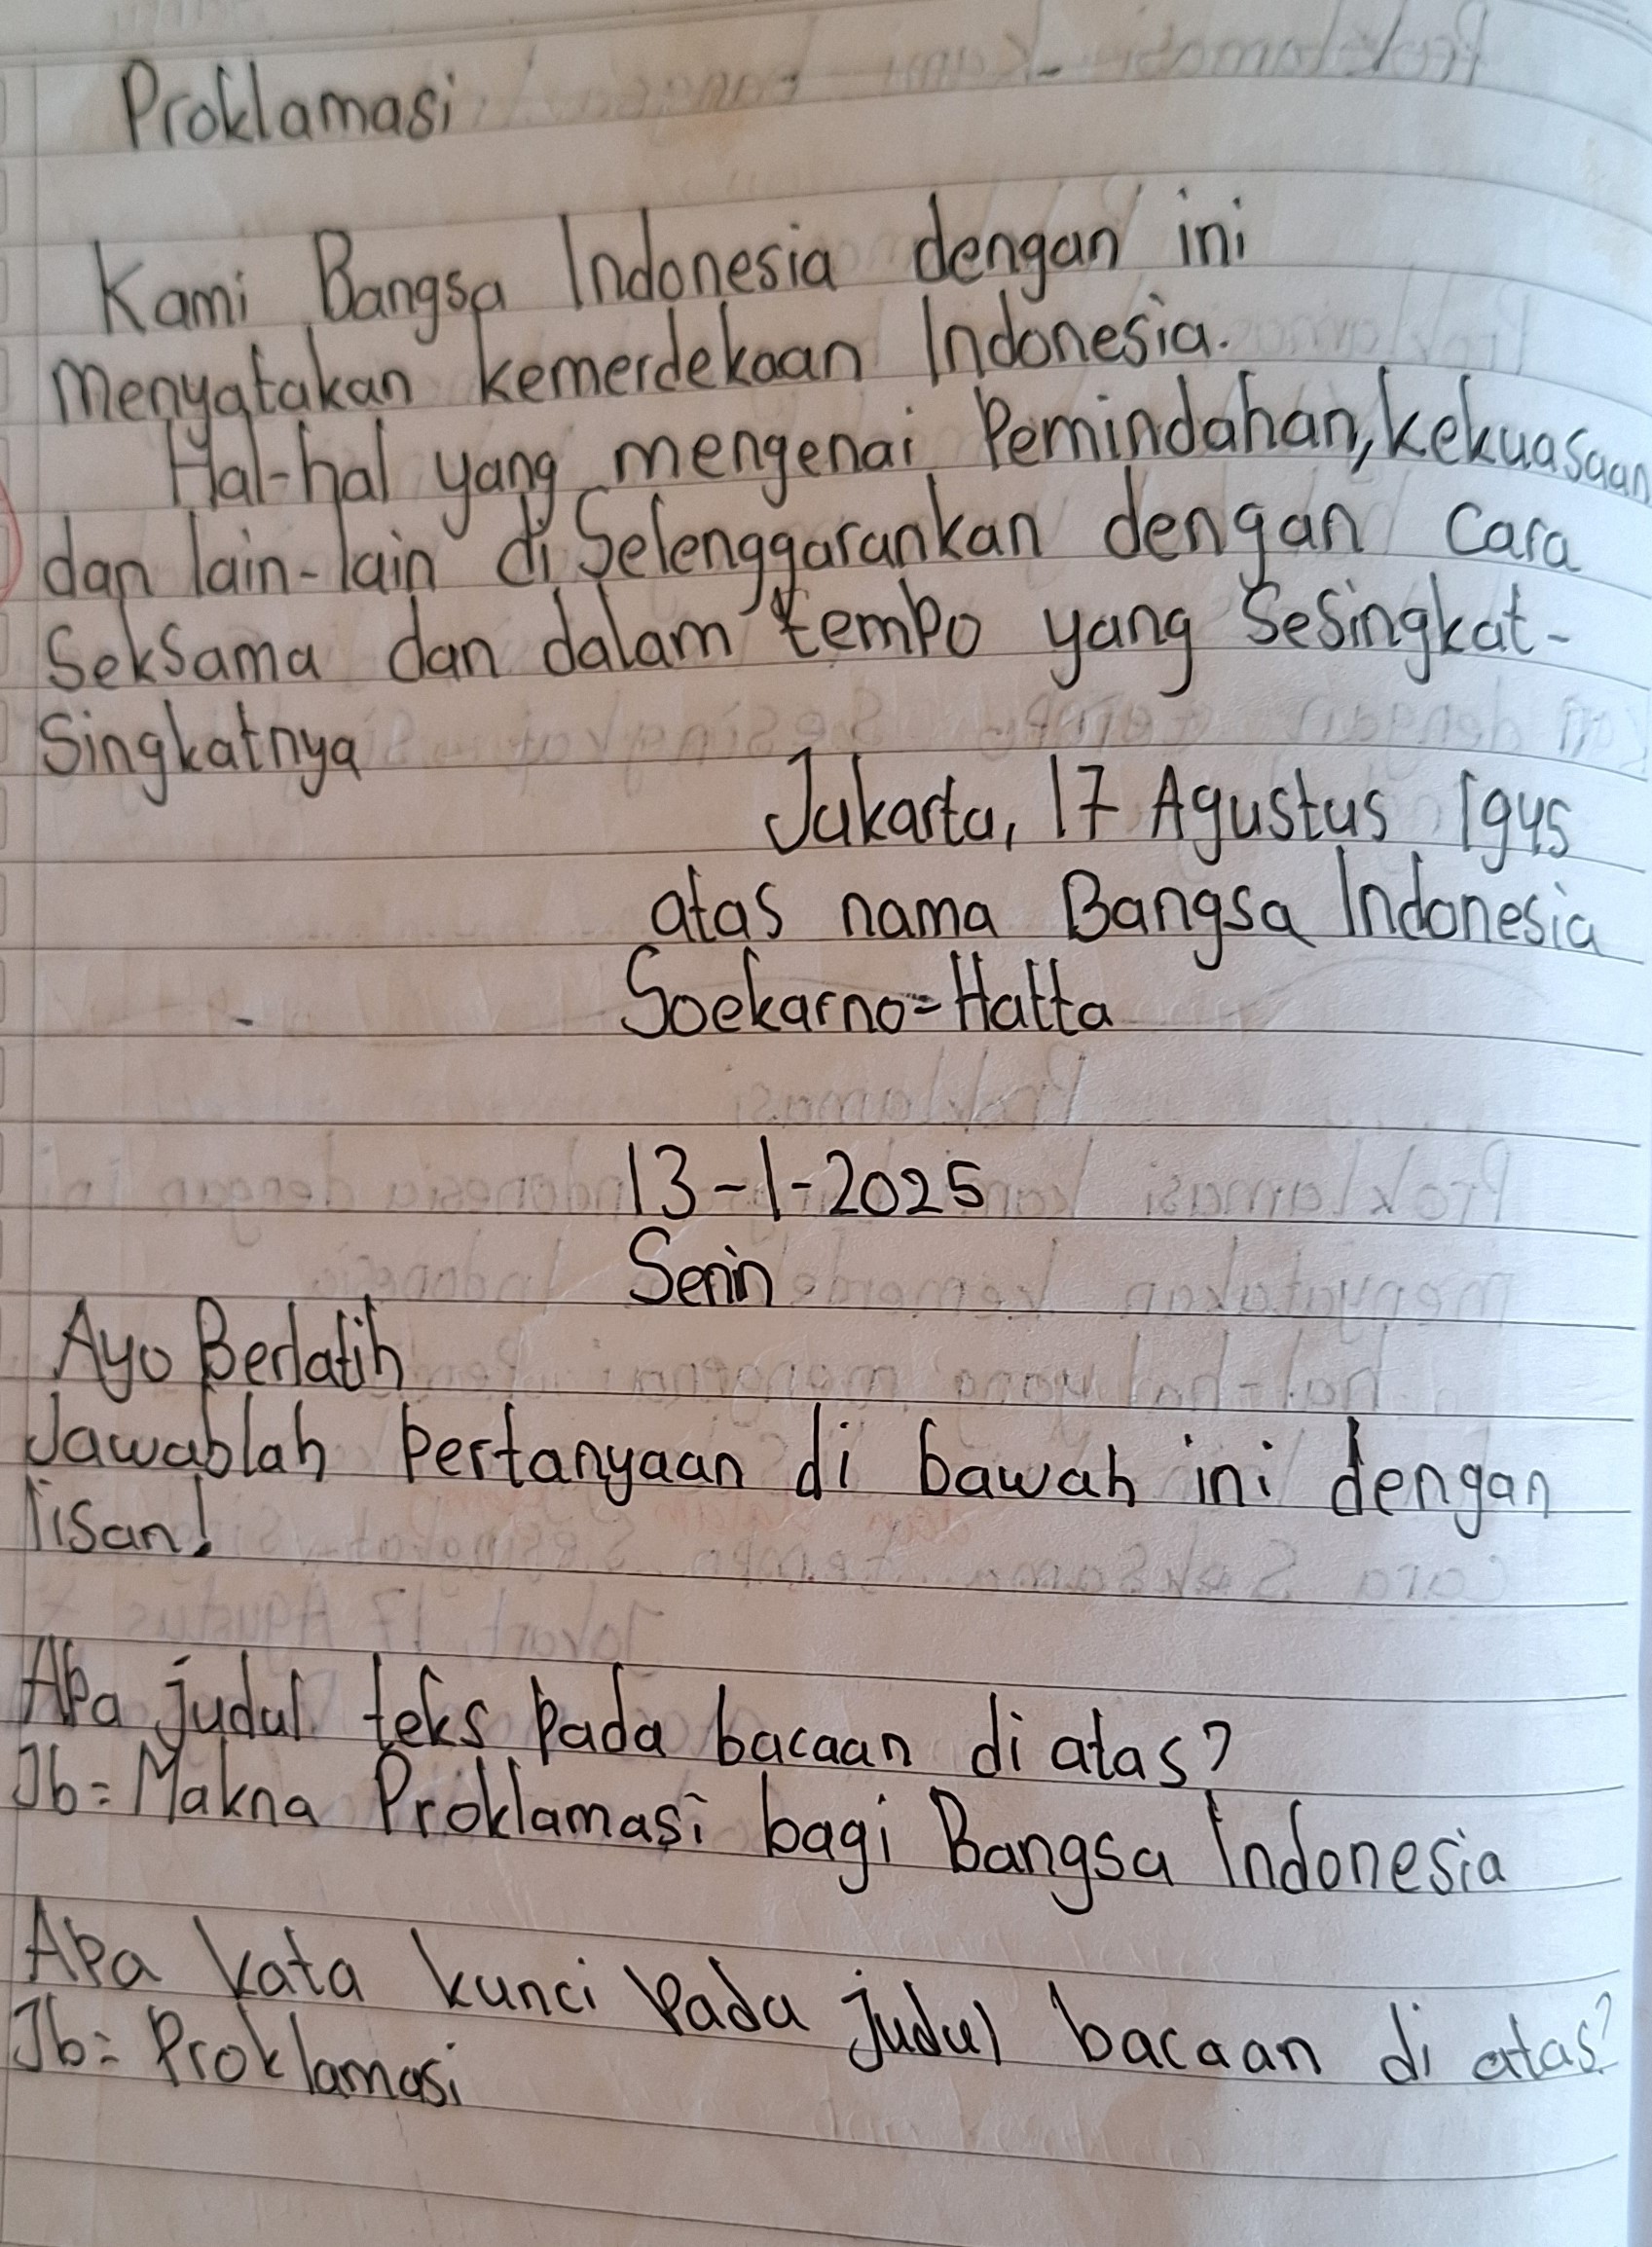 Proklamasi
Kami Bangsa Indonesia dengan ini
menyatakan kemerdekaan Indonesia.
Hal-hal yang mengenai Pemindahan, kekuasaan
dan lain-lain di Selenggarankan dengan cara
Seksama dan dalam tempo yang Sesingkat-
Singkatnya
Jakarta, 17 Agustus 1945
atas nama Bangsa Indonesia
Soekarno-Hatta
13-1-2025
Senin
Ayo Berlatih
Jawablah Pertanyaan di bawah ini dengan
lisan!
Apa judul teks Pada bacaan di atas?
Jb= Makna Proklamasi bagi Bangsa Indonesia
Apa kata kunci Pada judul bacaan di atas?
Jb= Proklamasi